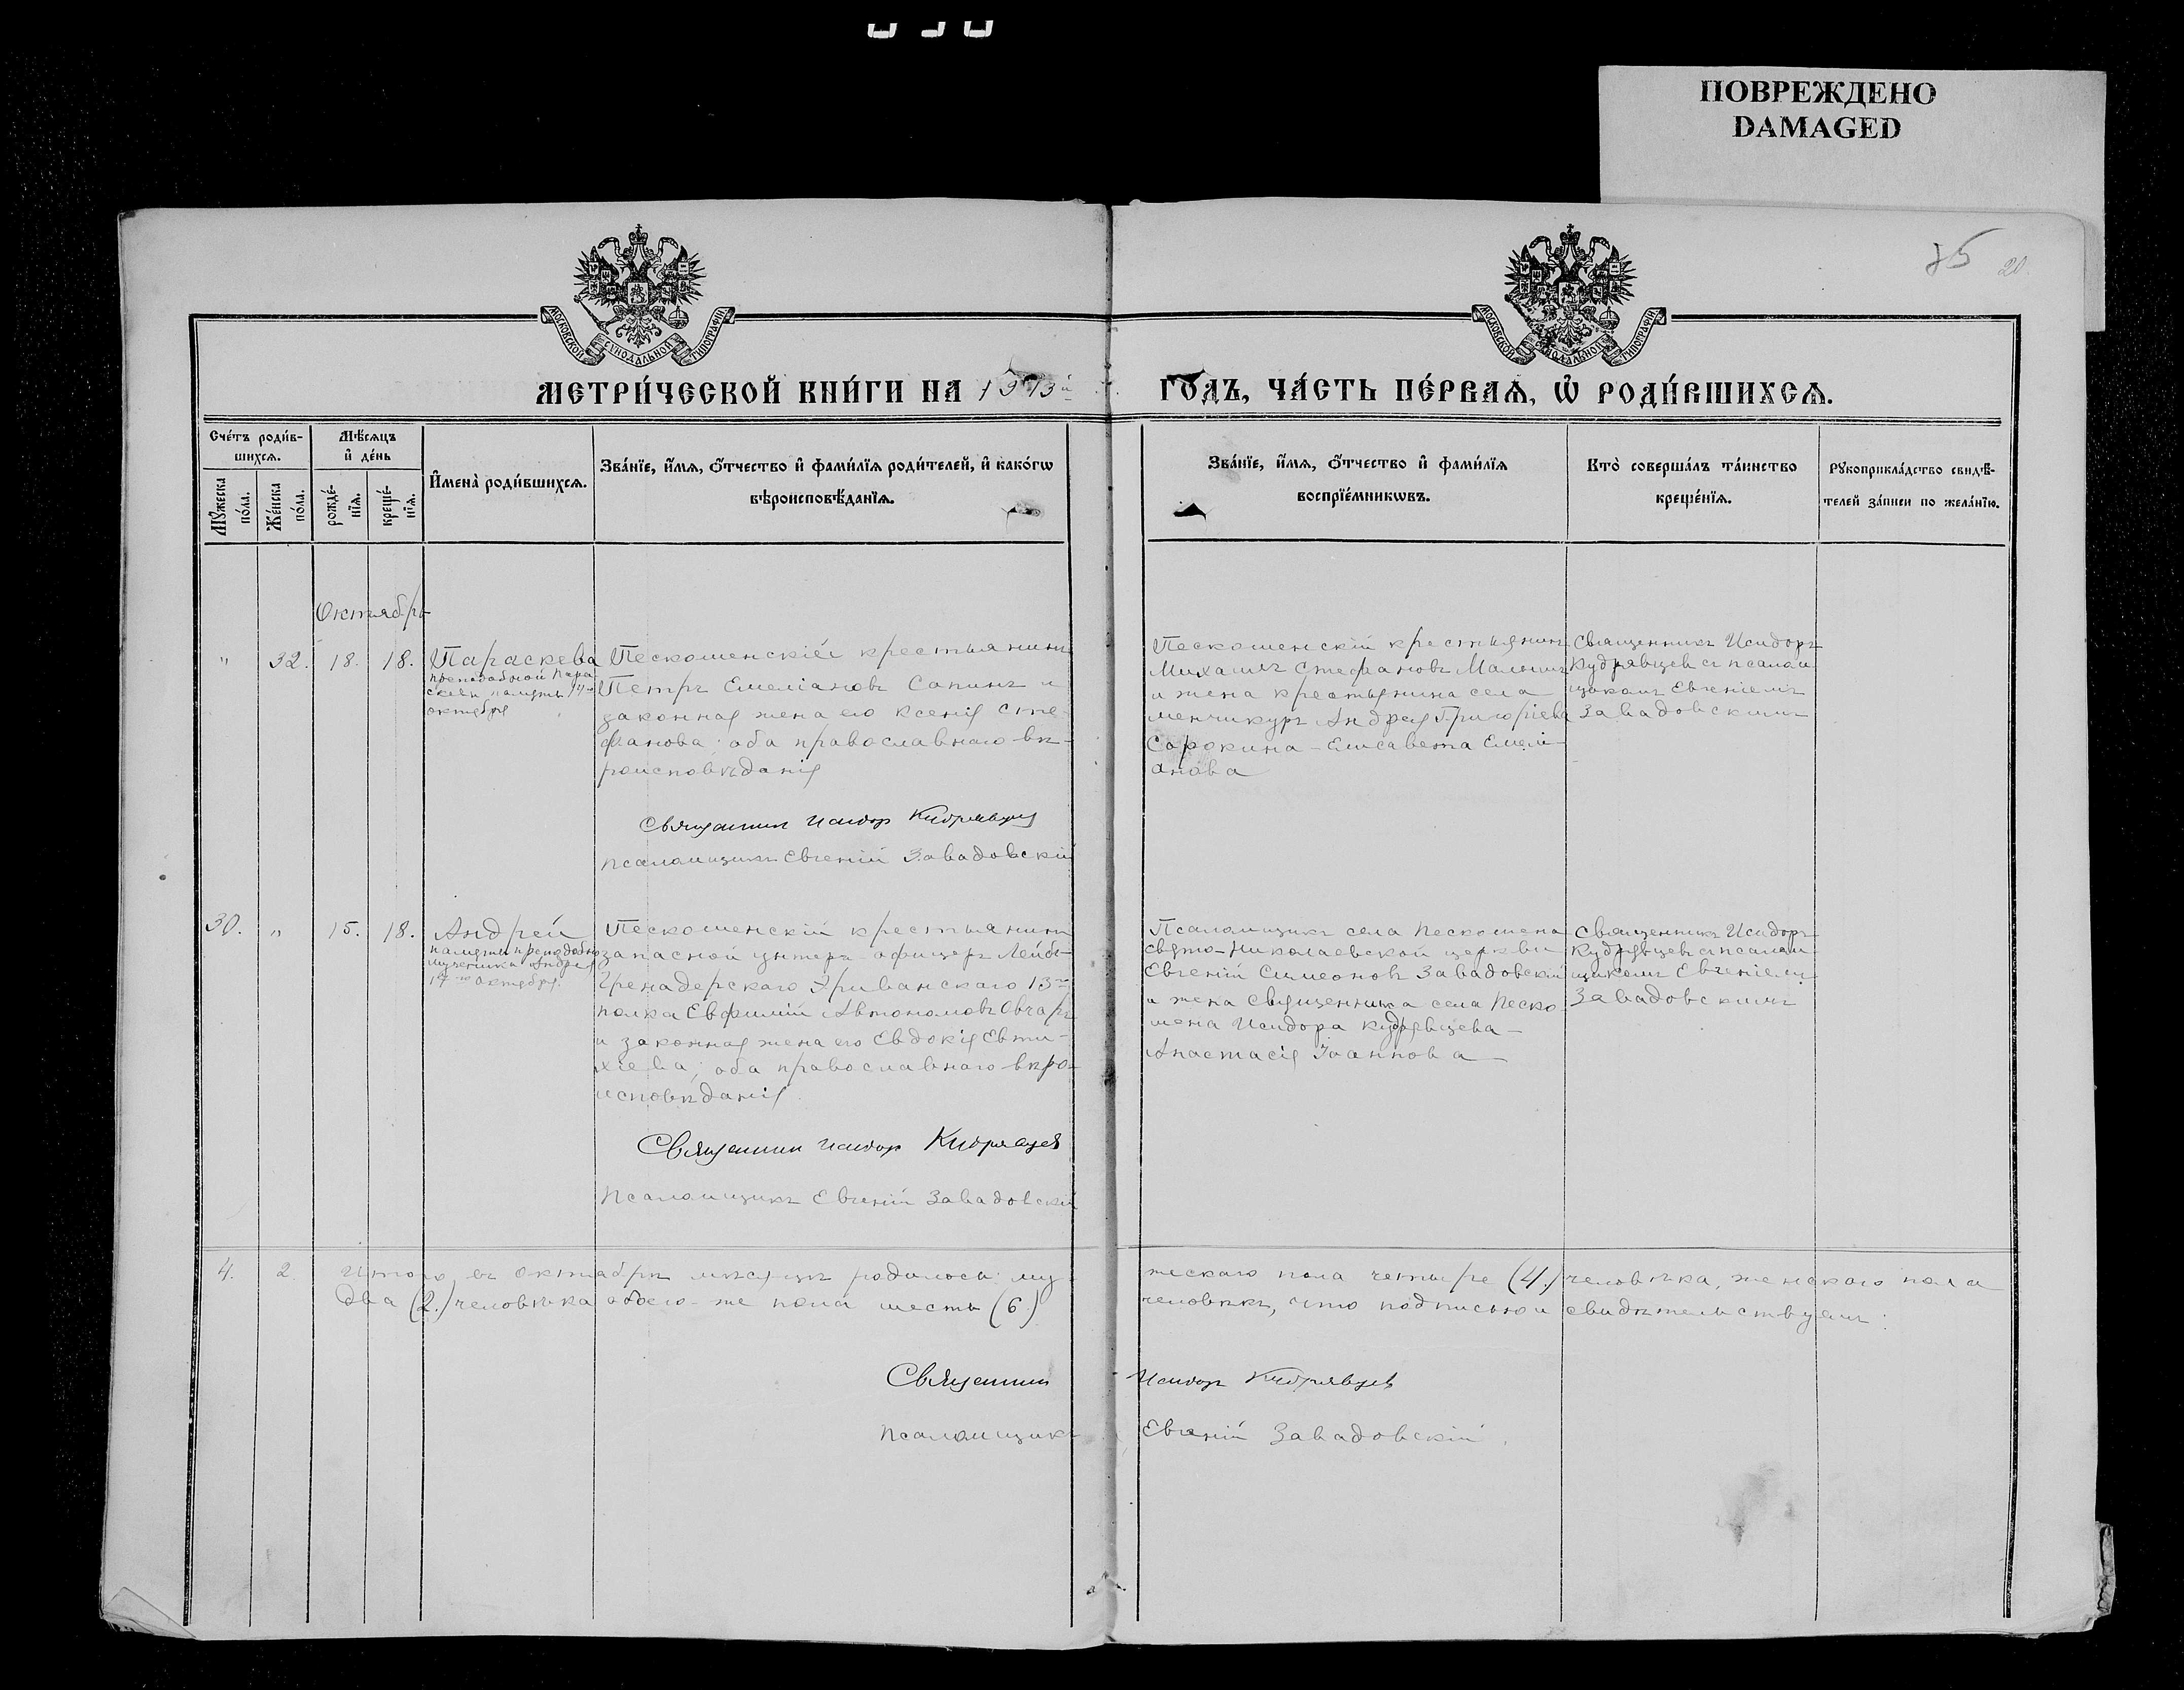 ПОВРЕЖДЕНО
DAMAGED
35 20.
МОСКОВСКОЙ СѴНОДАЛЬНОЙ ТИПОГРАФІИ
МОСКОВСКОЙ СѴНОДАЛЬНОЙ ТИПОГРАФІИ
МЕТРИ́ЧЕСКОЙ КНИ́ГИ НА 1913й ГО́ДЪ, ЧА́СТЬ ПЕ́РВАѦ, Ѽ РОДИ́ВШИХСѦ.
Сче́тъ роди́в-
шихсѧ.
Мꙋ́жеска
по́ла.
Же́нска
по́ла.
Мѣ́сѧцъ
и҆ де́нь
рожде́-
нїѧ.
креще́-
нїѧ.
И҆мена̀ роди́вшихсѧ.
Зва́нїе, и҆́мѧ, ѻ҆́тчество и҆ фами́лїѧ роди́телей, и҆ како́гѡ
вѣроисповѣ́данїѧ.
Зва́нїе, и҆́мѧ, ѻ҆́тчество и҆ фами́лїѧ
воспрїе́мникѡвъ.
Кто̀ соверша́лъ та́инство
креще́нїѧ.
Рꙋкоприкла́дство свидѣ́-
телей за́писи по жела́нїю.
Октябрь
" 32. 18. 18.
Параскева
преподобной Пара
скевы память 14го
октября
Пескошенскій крестьянинъ
Петръ Емеліановъ Сапинъ и
законная жена его Ксенія Сте-
фанова; оба православнаго вѣ-
роисповѣданія
Священник Исидор Кудрявцев
Псаломщикъ Евгеній Завадовскій
Пескошенскій крестьянинъ
Михаилъ Стефановъ
и жена крестьянина села
Менчикуръ Андрея Григоріева
Сорокина - Елисавета Емелі-
анова
Священникъ Исидоръ
Кудрявцевъ съ псалом
щикомъ Евгеніемъ
Завадовскимъ
30. " 15. 18.
Андрей
память преподобно
мученика Андрея
17го октября.
Пескошенскій крестьянинъ
запасной унтеръ-офицеръ Лейбъ-
Гренадерскаго Эриванскаго 13го
полка Евфимій Автономовъ Овчаръ
и законная жена его Евдокія Евти-
хіева; оба православнаго вѣро-
исповѣданія
Священник Исидор Кудрявцев
Псаломщикъ Евгеній Завадовскій
Псаломщикъ села Пескошена
Свято-Николаевской церкви
Евгеній Симеоновъ Завадовскій
и жена Священника села Песко
шена Исидора Кудрявцева -
Анастасія Іоаннова -
Священникъ Исидоръ
Кудрявцевъ съ псалом
щикомъ Евгеніемъ
Завадовскимъ
4. 2. Итого въ октябрѣ мѣсяцѣ родилось: му жескаго пола четыре (4.) человѣка, женскаго пола
два (2.) человѣка обоего-же пола шесть (6.) человѣкъ, что подписью и свидѣтельствуемъ:
Священник Исидор Кудрявцев
Псаломщикъ Евгеній Завадовскій.